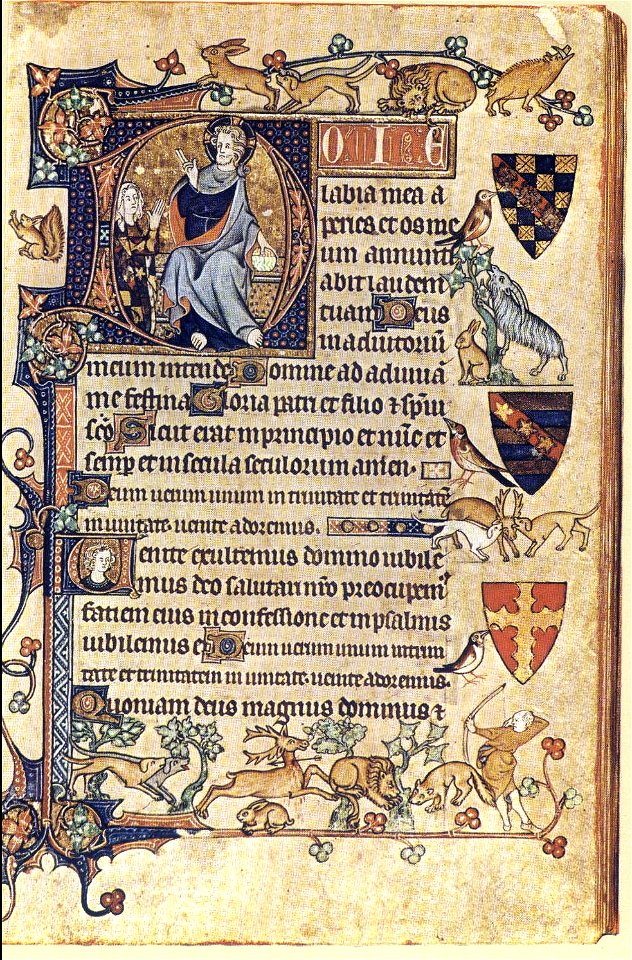 DOIE
labia mea a
peries et os me
um annunti
abit laudem
tuam Deus
in adiutoriū
meum intende Domine ad adiuuā
me festina Gloria patri et filio ⁊ spūi
scō Sicut erat in principio et nūc et
semp et in secula seculorum amen.
Deum uerum unum in trinitate et trinitatē
in unitate uenite adoremus.
Uenite exultemus domino iubile
mus deo salutari nr̄o preocupem
faciem eius in confessione et in psalmis
iubilemus ei Deum uerum unum in trini
tate et trinitatem in unitate. uenite adoremus.
Quoniam deus magnus dominus ⁊